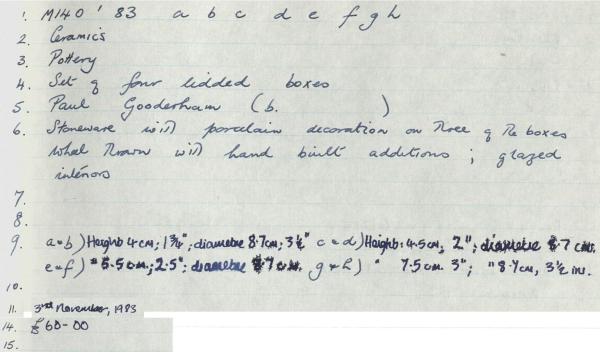 1. M140 '83 a b c d e f g h
2. Ceramics
3. Pottery
4. Set of four lidded boxes
5. Paul Gooderham (b. )
6. Stoneware with porcelain decoration on three of the boxes
wheel thrown with hand built additions ; glazed
interiors
7.
8.
9. a+b) Height 4cm; 1¾"; diametre 8.7cm; 3½" c+d) Height: 4.5cm, 2"; diametre 7 cms.
e+f) " 5.5cm.; 2.5"; diametre 7cm. g+h) " 7.5cm. 3"; " 8.7cm, 3½ ins.
10.
11. 3rd November, 1983
14. £60-00
15.